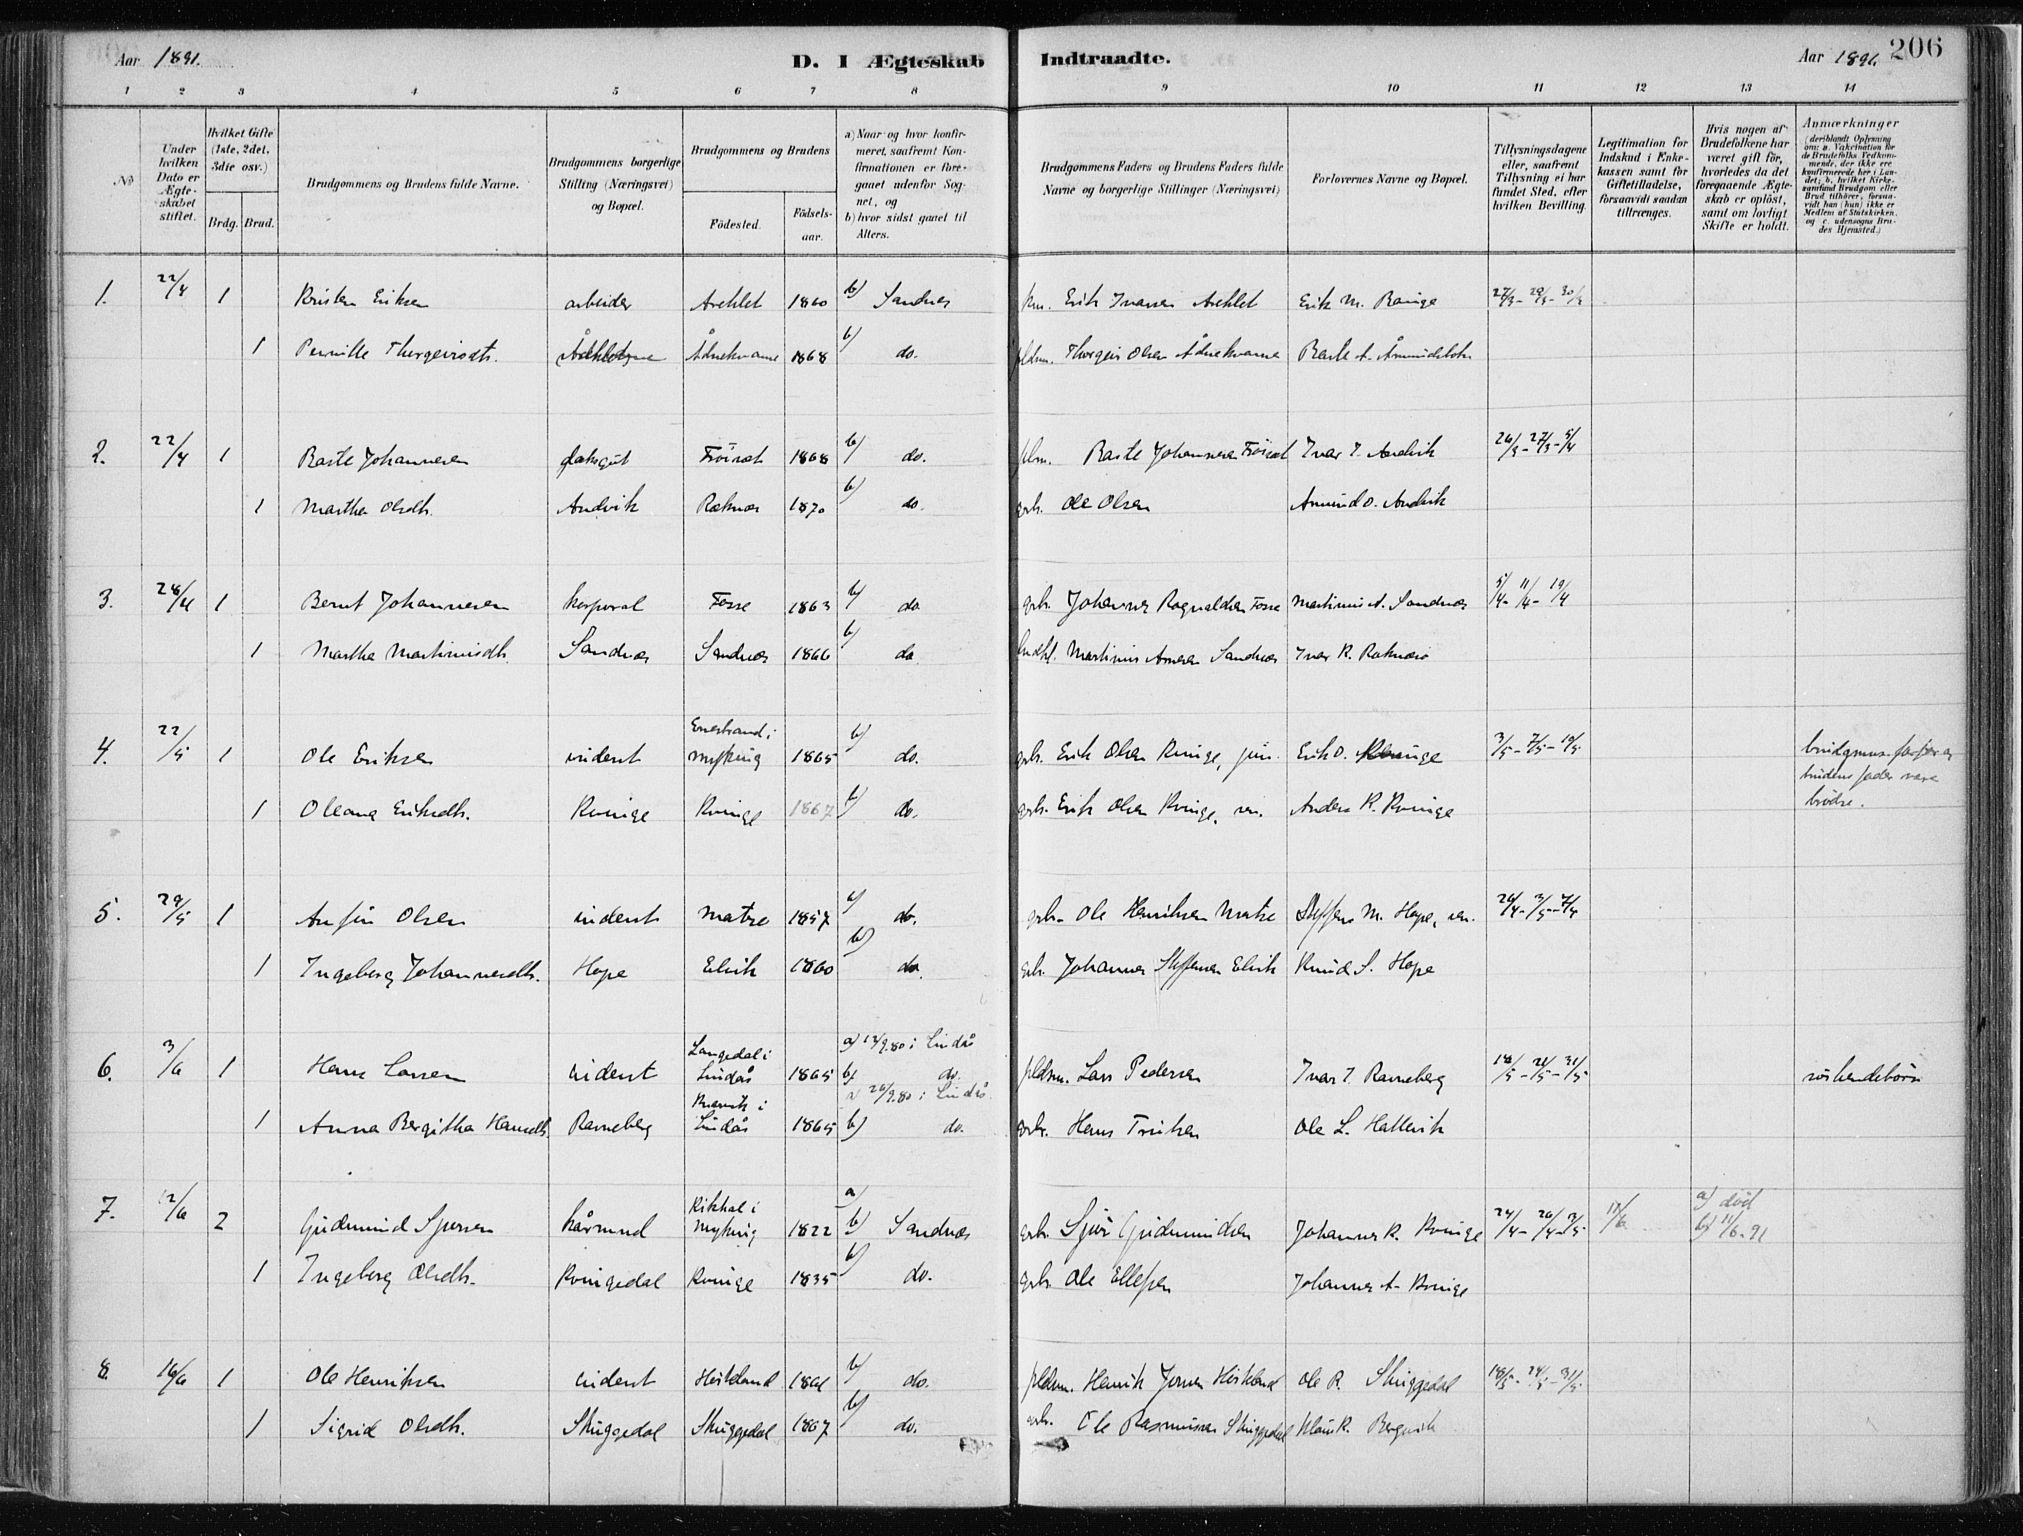 Aar 1891. D. I Ægteskab Indtraadte. Aar 1891. 206
1 2 3 4 5 6 7 8 9 10 11 12 13 14
No
Under hvilken Dato er Ægteskabet stiftet.
Hvilket Gifte (1ste, 2det, 3die osv.)
Brdg. Brud.
Brudgommens og Brudens fulde Navne.
Brudgommens borgerlige Stilling (Næringsvei) og Bopæl.
Brudgommens og Brudens
Födested. Födselsaar.
a) Naar og hvor konfirmeret, saafremt Konfirmationen er foregaaet udenfor Sognet, og
b) hvor sidst gaaet til Alters.
Brudgommens Faders og Brudens Faders fulde Navne og borgerlige Stillinger (Næringsvei)
Forlovernes Navne og Bopæl.
Tillysningsdagene eller, saafremt Tillysning ei har fundet Sted, efter hvilken Bevilling.
Legitimation for Indskud i Enkekassen samt for Giftetilladelse, forsaavidt saadan tiltrænges.
Hvis nogen af Brudefolkene har været gift för, hvorledes da det foregaaende Ægteskab er oplöst, samt om lovligt Skifte er holdt.
Anmærkninger
(deriblandt Oplysning om: a. Vakcination for de Brudefolks Vedkommende, der ikke ere konfirmerede her i Landet; b. hvilket Kirkesamfund Brudgom eller Brud tilhörer, forsaavidt han (hun) ikke er Medlem af Statskirken, og c. udensogns Brudes Hjemsted.)
1. 22/4 1 Kristen Eriksen arbeider 1860 b) Sandnes Erik Ivarsen Erik M. 27/3 - 29/3 - 30/3
1 Pernille Thorgeirsdt. Ådnekvame 1868 b) do. pldsm. Thorgeir Olsen Ådnekvame
2. 22/4 1 Baste Johannesen Fröiset 1868 b) do. Baste Johannesen Fröiset Ivar I. Andvik 26/3 - 27/3 - 5/4
1 Martha Olsdtr. Andvik Raknes 1870 b) do. grb. Ole Olsen Amund O. Andvik
3. 28/4 1 Bernt Johannesen korporal Fosse 1863 b) do grb. Johannes Ragnaldsen Fosse Martinus A. Sandnes 5/4 - 11/4 - 19/4
1 Martha Martinusdtr. Sandnes Sandnes 1866 b) do Martinus Arnesen Sandnes Ivar R. Raknes
4. 22/5 1 Ole Eriksen inderst myking 1865 b) do. grb. Erik Olsen Kvinge, jun. Erik O. Kvinge 3/5 - 7/5 - 10/5 brudgoms farfar og brudens fader vare brödre.
1 Oleana Eriksdtr. Kvinge Kvinge 1867 b) do. grb. Erik Olsen Kvinge, sen. Anders K. Kvinge
5. 29/5 1 Anfin Olsen inderst Matre 1857 b) do. grb. Ole Henriksen Matre Steffen M. Hope, sen. 26/4 - 3/5 - 7/5
1 Ingeborg Johannesdtr. Hope Elvik 1860 b) do. grb. Johannes Steffensen Elvik Knud S. Hope
6. 3/6 1 Hans Larsen inderst Langedal i Lindås 1865 a) 14/9.80 i Lindås b) do. pldsm. Lars Pedersen Ivar I. Ravneberg 18/5 - 21/5 - 31/5 söskendebörn
1 Anna Bergitha Hansdtr. Ravneberg i Lindås 1865 a) 26/9.80 i Lindås b) do. grb. Hans Ole L. Hattevik
7. 12/6 2 Gudmund Sjursen kårmand Kikhol i myking 1822 a) b) Sandnes grb. Sjur Gudmundsen Johannes R. Kvinge 24/4 - 26/4 - 3/5 11/6 a) död b) 11/6-91
1 Ingeborg Olsdtr. Kvingedal Kvinge 1835 b) do. grb. Ole Ellefsen Johannes A. Kvinge
8. 16/6 1 Ole Henriksen inderst Heikland b) do. pldsm. Henrik Jonsen Heikland Ole R. Skuggedal 18/5 - 24/5 - 31/5
1 Sigrid Olsdtr. Skuggedal Skuggedal 1867 b) do. grb. Ole Rasmussen Skuggedal R. Bergsvik